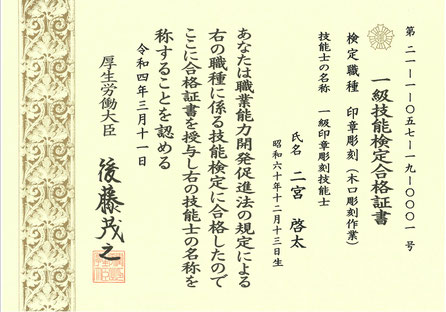 第二一-一-〇五七-一九-〇〇〇一号
一級技能検定合格証書
検定職種 印章彫刻(木口彫刻作業)
技能士の名称 一級印章彫刻技能士
氏名 二宮啓太
昭和六十年十二月十三日生
あなたは職業能力開発促進法の規定による
右の職種に係る技能検定に合格したので
ここに合格証書を授与し右の技能士の名称を
称することを認める
令和四年三月十一日
厚生労働大臣 後藤茂之